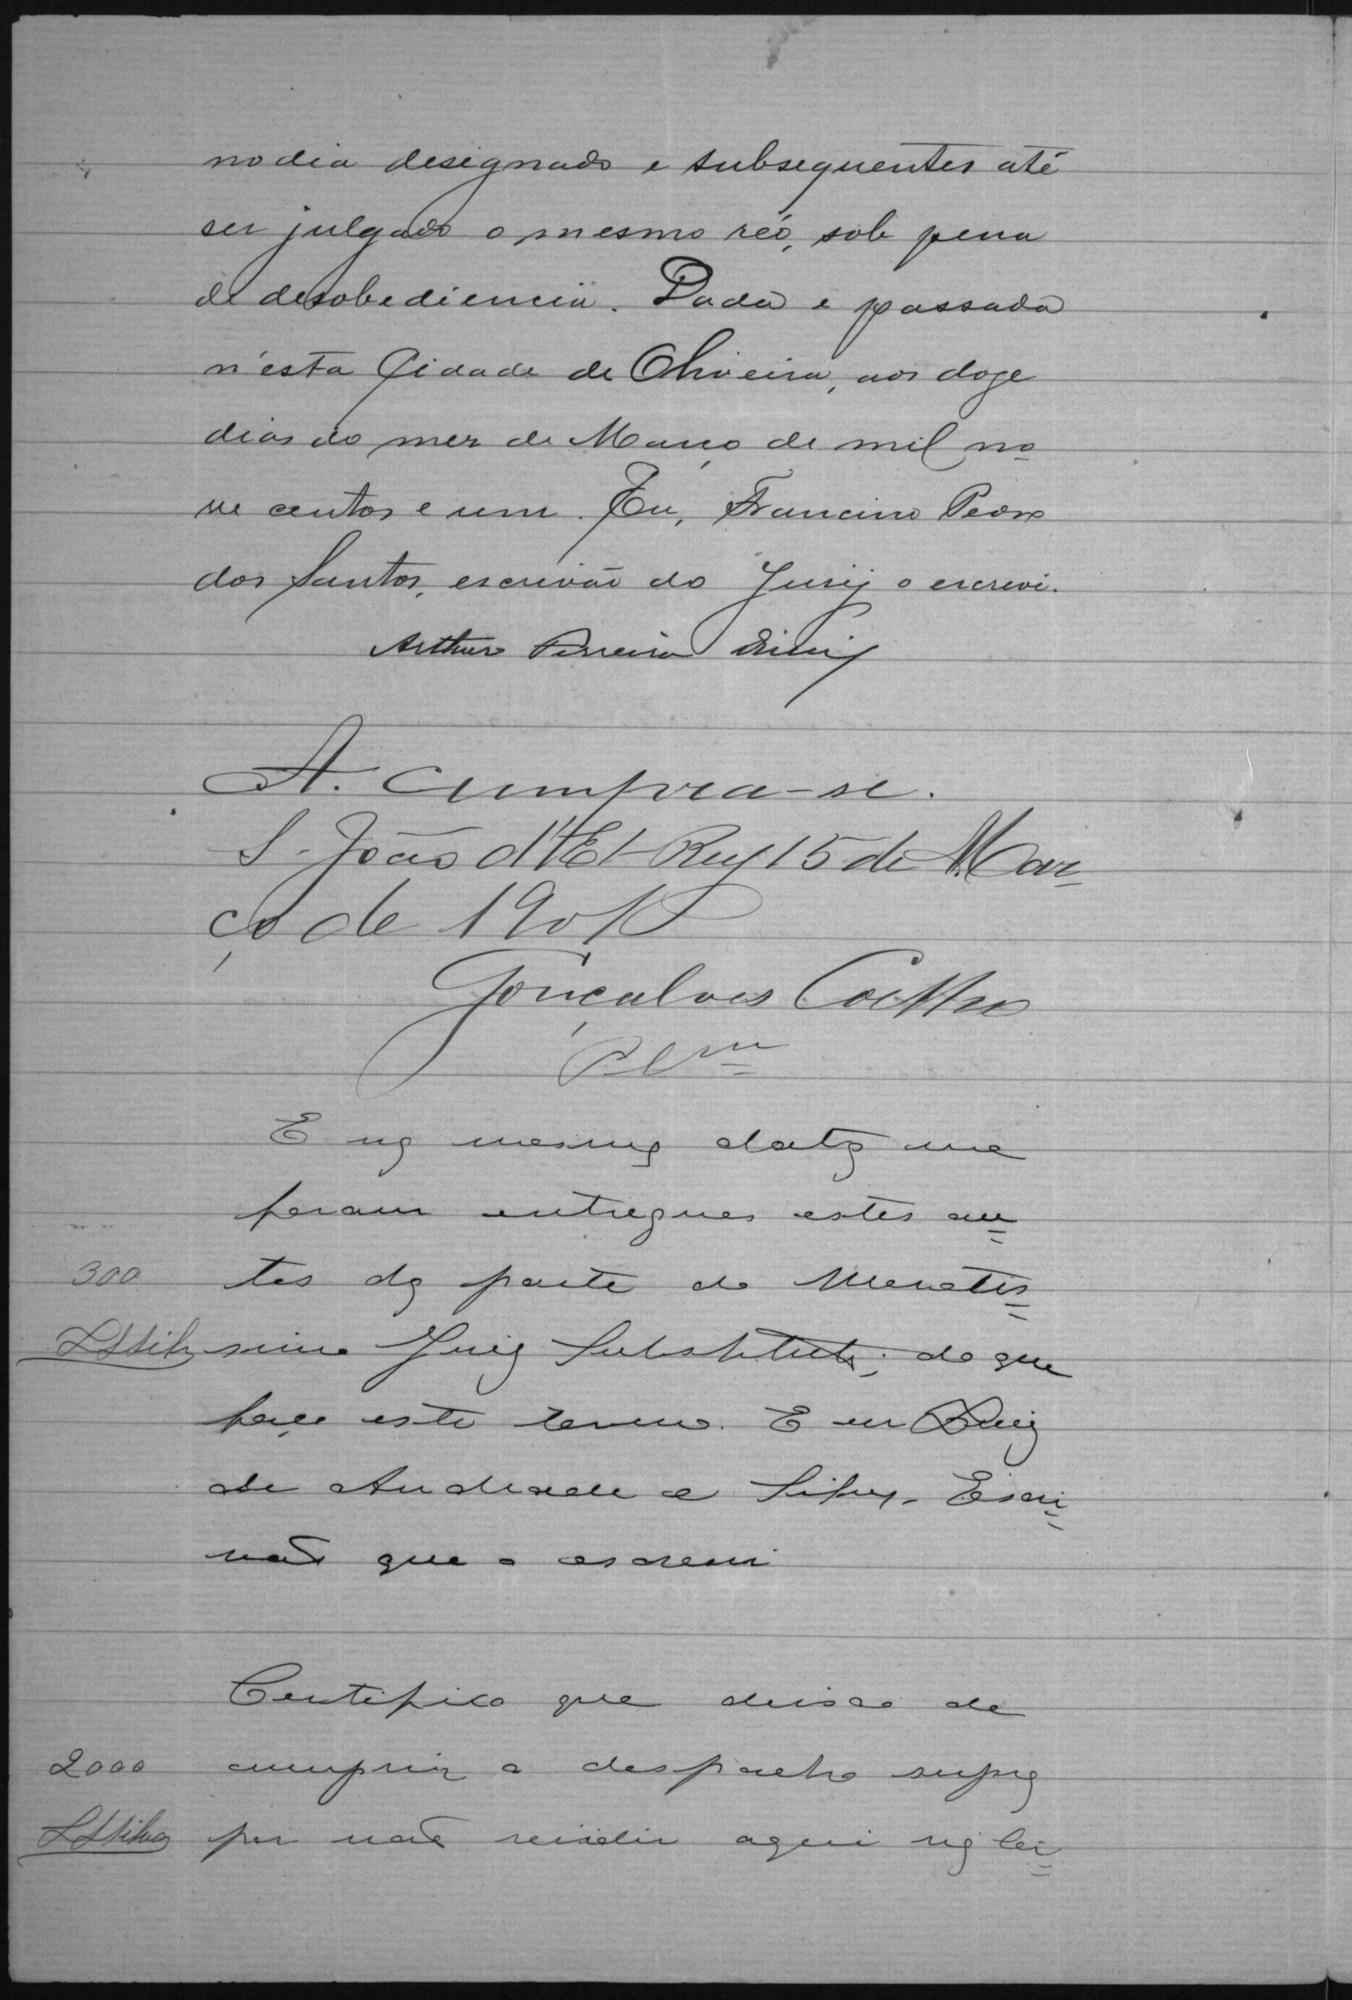 no dia designado e subsequentes até
ser julgado o mesmo réo, sob pena
de desobediencia. Dada e passada
n'esta Cidade de Oliveira, aos doze
dias do mez de Março de mil no-
ve centos e um. Eu, Francino Pedro
dos Santos, escrivão do Jury o escrevi.
Arthur Ferreira Diniz
A. Cumpra-se.
S. João d'El-Rey 15 de Mar-
ço de 1901
Gonçalves Coelho
E na mesma data me
foram entregues estes au=
300
tos da parte do Meretis=
LSSilva
simo Juiz Substituto; do que
faço este termo. E eu Luiz
de Andrade e Silva, Escri=
vão que o escrevi
Certifico que deixo de
2000
cumprir o despacho supra
LSSilva
por não residir aqui na Ci=